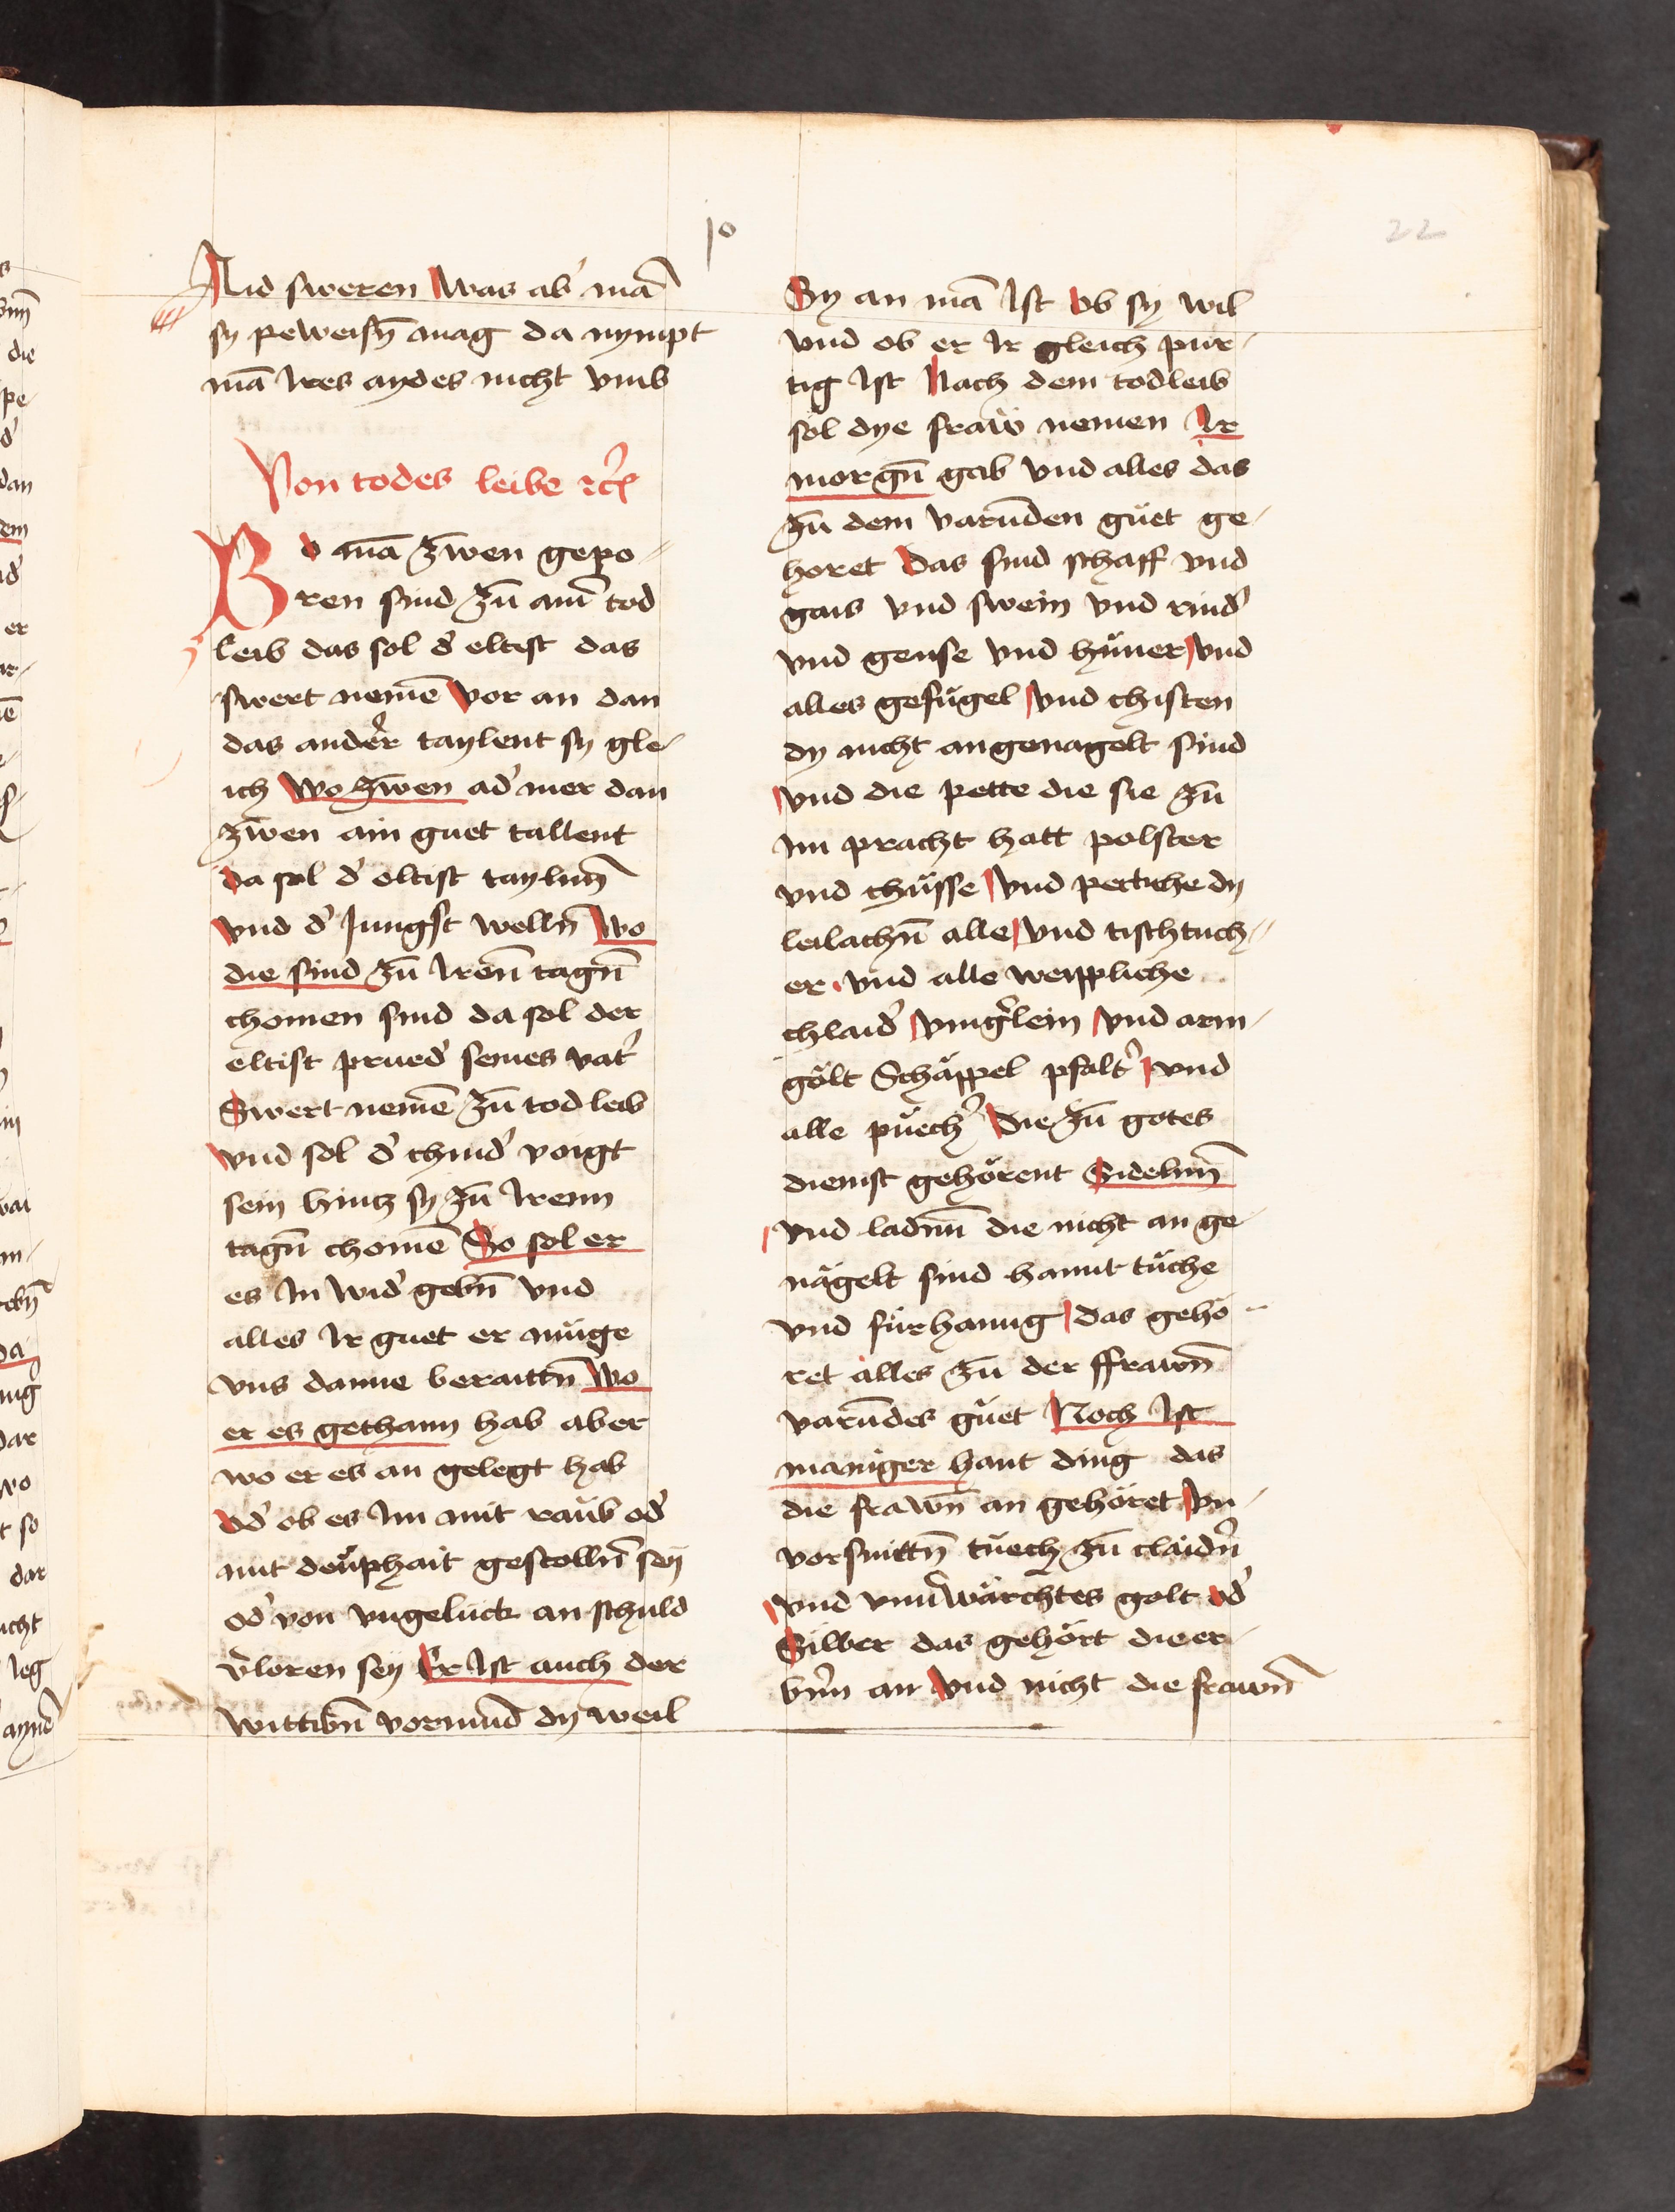 10
22
Aid sweren Was ab' mā
sy peweisn̄ mag da nympt
mā Ires aydes nicht vmb
Von todes leibe ꝛc̄
Wo mā zwen gepo-
ren sind zū aim̄ tod
leib das sol d' eltist das
swert nemē vor an dan
das ander' taylent sy gle-
ich Wo zwen ad' mer dan
zwen ain guet tallent
da sol d' eltist taylnn̄
vnd d' Jungst welln̄ Wo
die sind zū Iren̄ tagn̄
chomen sind da sol der
eltist prued' seines vat'
Swert nemē zū tod leib
vnd sol d' chind' voigt
sein hintz sy zū Irenn
tagn̄ chomē So sol er
es In wid' gebn̄ vnd
alles Ir guet er muge
vns danne beraittn̄ Wo
er es gethann hab aber
wo er es an gelegt hab
Od' ob es Im mit raub od'
mit deuphait gestolln̄ sey
od' von vngelück an schuld
v'loren sey Er Ist auch der
wittibn̄ vormund dy weil
Sy an mā Ist Ob sy wil
vnd ob er Ir gleich pur-
tig Ist Nach dem todleib
sol dye fraw nemen Ir
morgn̄ gab vnd alles das
zū dem varūden guet ge-
horet Das sind schaff vnd
gais vnd swein vnd rind'
vnd gense vnd hüner vnd
alles gefügel vnd chisten
dy nicht angenagelt sind
vnd die pette die sie zū
im pracht hatt polster
vnd chüsse vnd pertuche dy
leilachn̄ alle vnd tischtuch-
er vnd alle weippliche
chlaid' ving'lein vnd arm-
gölt Schäppel psalt' vnd
alle puech' Die zū gotes
dienst gehörent Sidelnn̄
vnd ladnn̄ die nicht an ge-
nägelt sind hannt tüche
vnd fürhanng das gehö-
ret alles zū der ffrawn̄
varūdes güet Noch Ist
maniger hant ding das
die frawn̄ an gehöret Vn-
vorsnittn̄ tuech zū claidn̄
vnd vnu'wärchtes golt od'
Silber das gehört die er-
bn̄n an vnd nicht die frawn̄